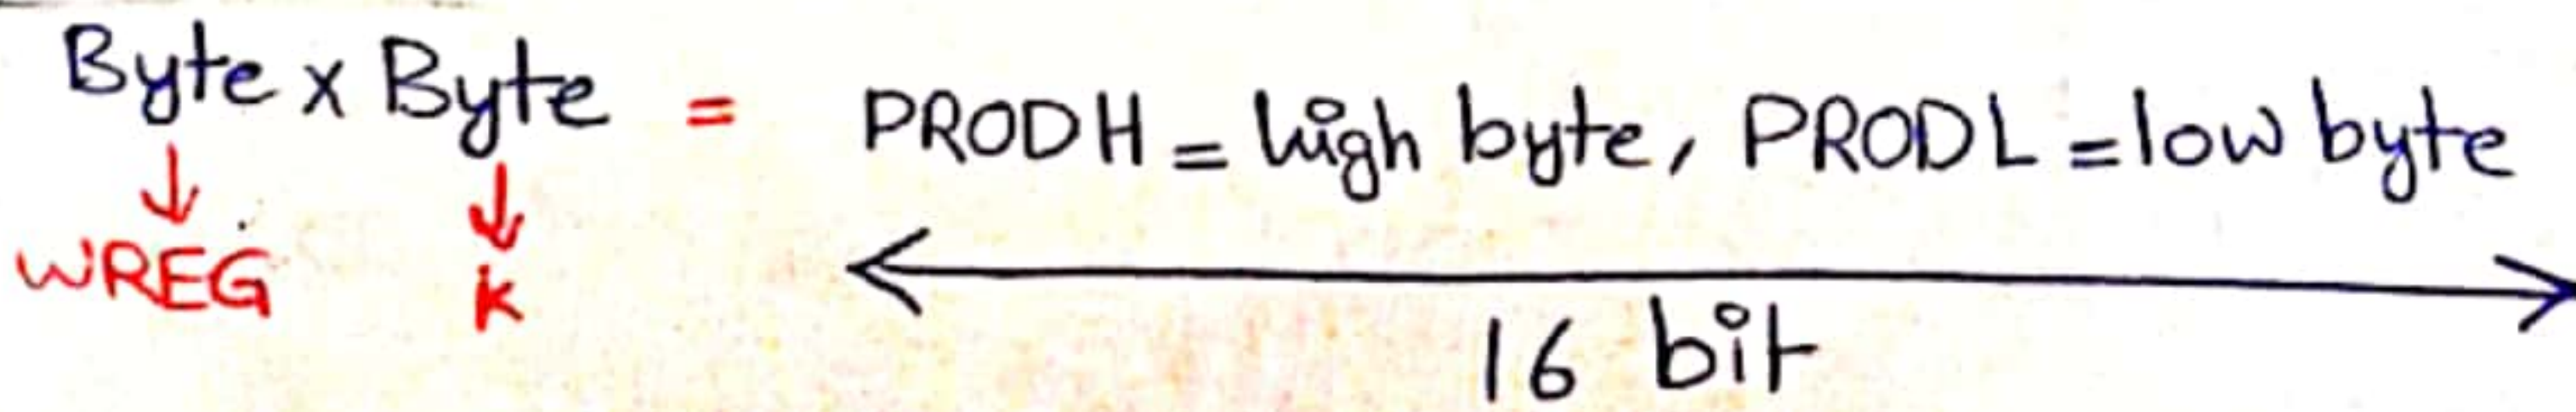 Byte x Byte = PRODH = high byte, PRODL = low byte
↓ ↓
WREG K
16 bit